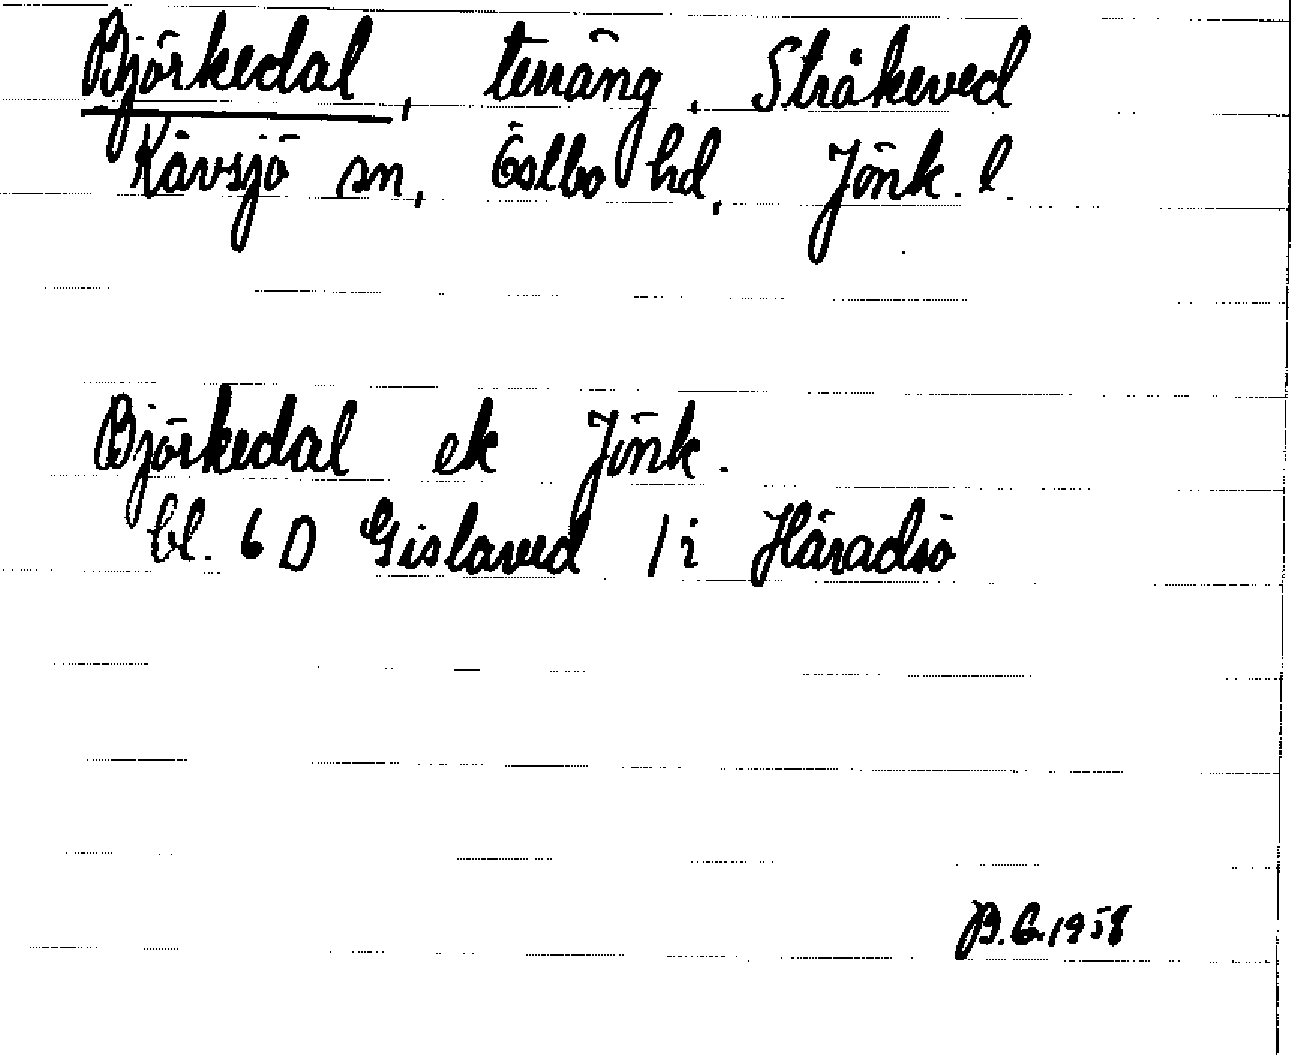 Björkedal, terräng, Stråkeved
Kävsjö sn, Östbo hd, Jönk. l.
Björkedal ek Jönk.
bl. 6 D Gislaved 1 i Häradsö
B.E. 1958